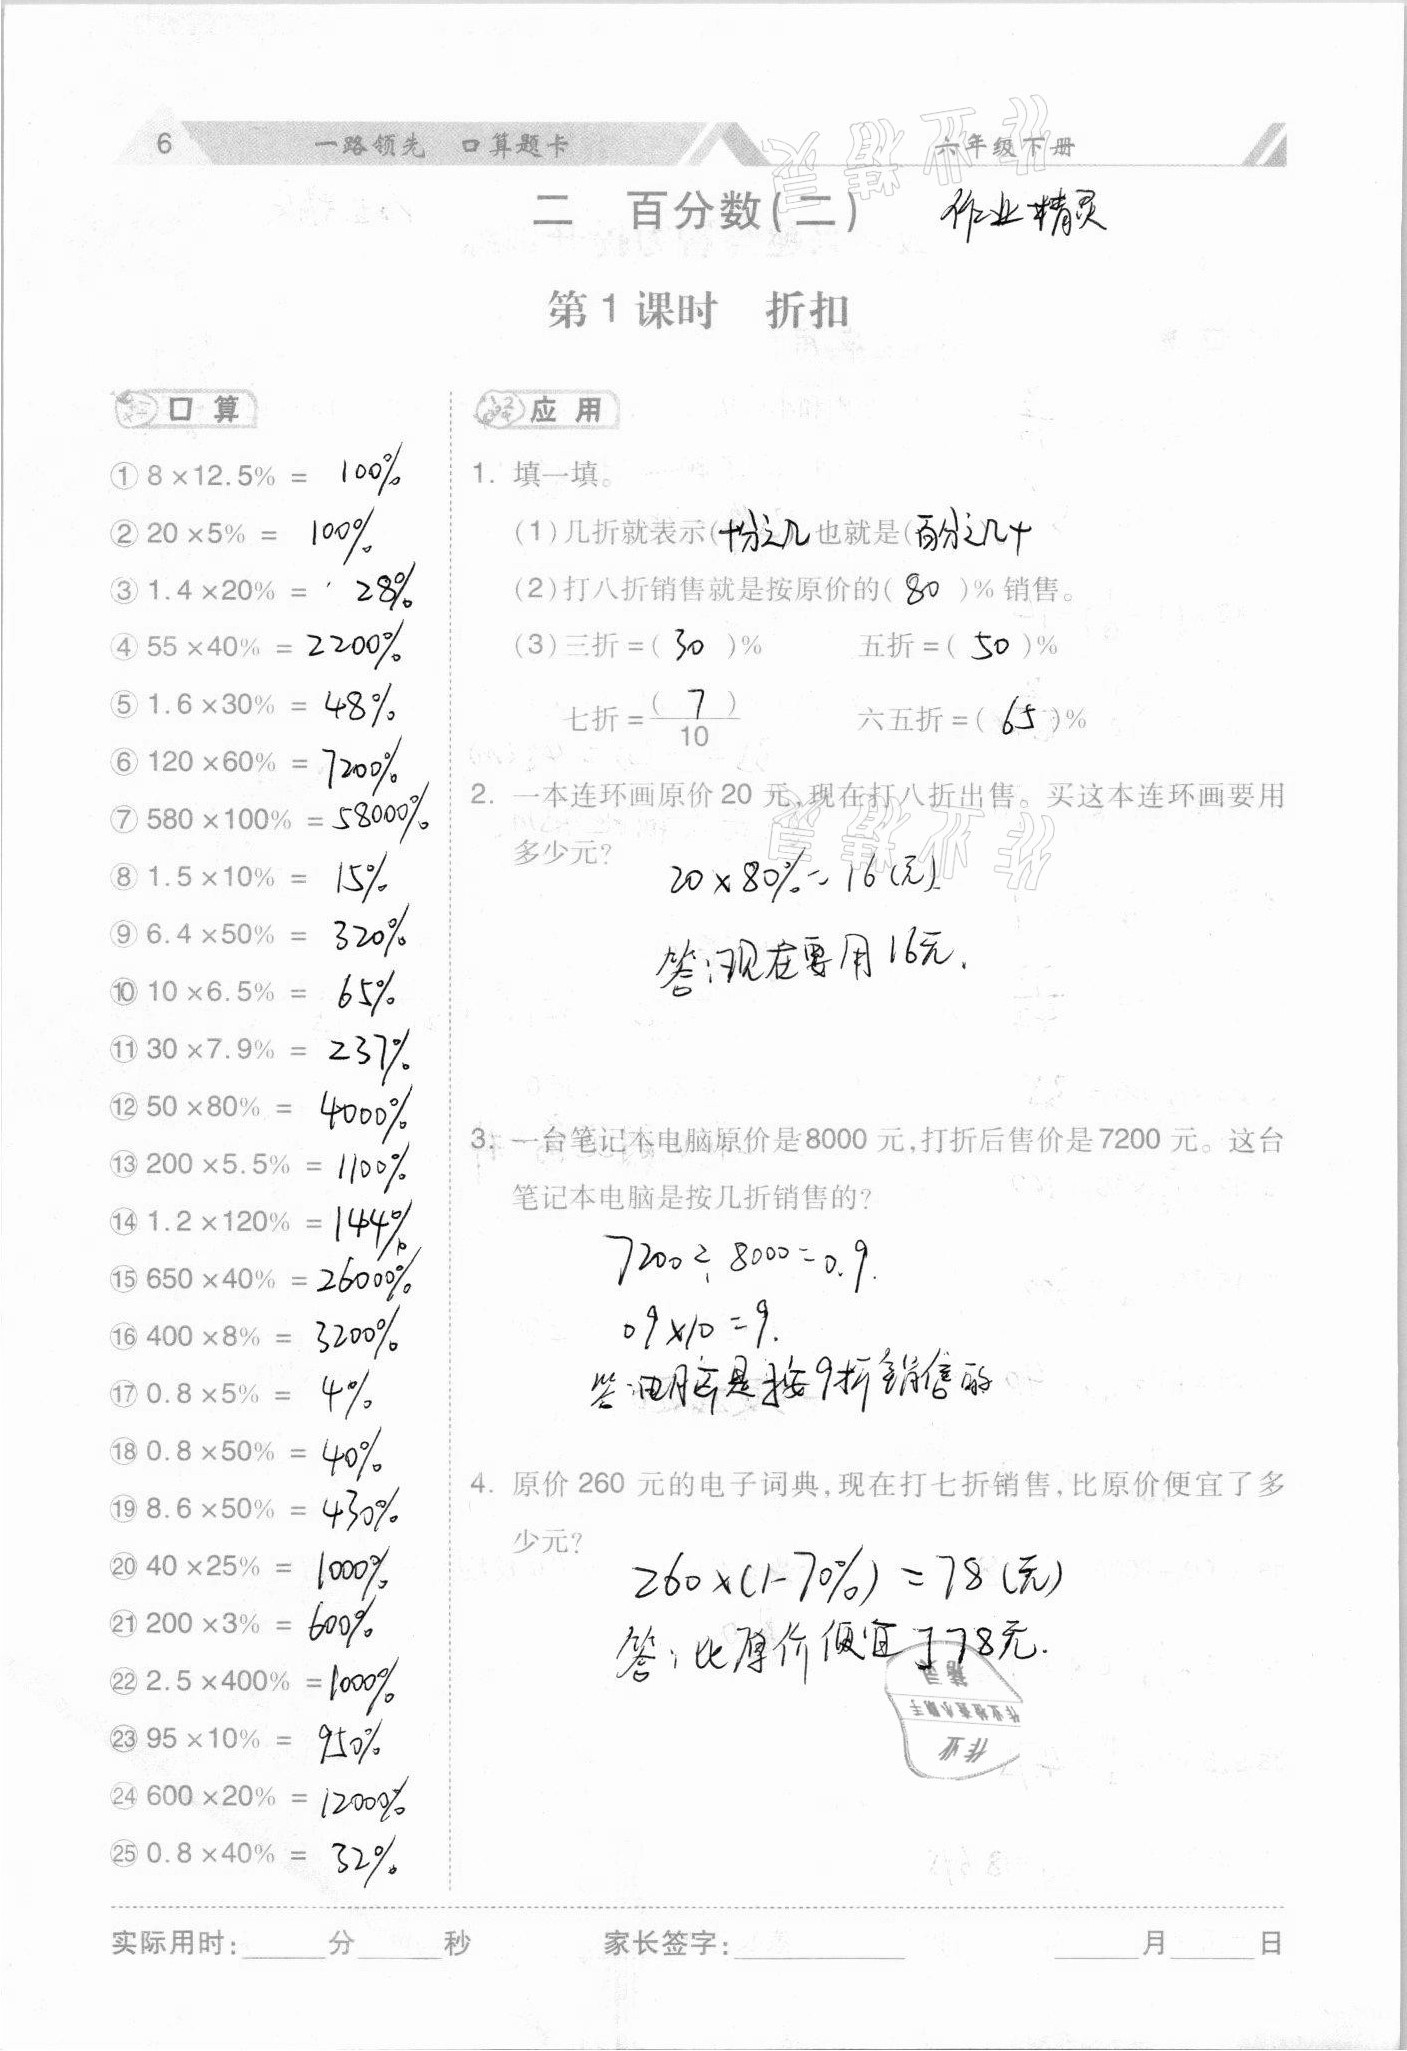 6 一路领先 口算题卡 六年级下册
二 百分数(二) 作业精灵
第1课时 折扣
口算
① 8×12.5% = 100%
② 20×5% = 100%
③ 1.4×20% = 28%
④ 55×40% = 2200%
⑤ 1.6×30% = 48%
⑥ 120×60% = 7200%
⑦ 580×100% = 58000%
⑧ 1.5×10% = 15%
⑨ 6.4×50% = 320%
⑩ 10×6.5% = 65%
⑪ 30×7.9% = 237%
⑫ 50×80% = 4000%
⑬ 200×5.5% = 1100%
⑭ 1.2×120% = 144%
⑮ 650×40% = 26000%
⑯ 400×8% = 3200%
⑰ 0.8×5% = 4%
⑱ 0.8×50% = 40%
⑲ 8.6×50% = 430%
⑳ 40×25% = 1000%
㉑ 200×3% = 600%
㉒ 2.5×400% = 1000%
㉓ 95×10% = 950%
㉔ 600×20% = 12000%
㉕ 0.8×40% = 32%
应用
1. 填一填。
(1)几折就表示(十分之几 也就是(百分之几十
(2)打八折销售就是按原价的( 80 )%销售。
(3)三折=( 30 )% 五折=( 50 )%
七折=( 7 )/10 六五折=( 65 )%
2. 一本连环画原价20元,现在打八折出售。买这本连环画要用
多少元?
20×80%=16(元)
答:现在要用16元.
3. 一台笔记本电脑原价是8000元,打折后售价是7200元。这台
笔记本电脑是按几折销售的?
7200÷8000=0.9.
09×10=9.
答:电脑是按9折销售的
4. 原价260元的电子词典,现在打七折销售,比原价便宜了多
少元?
260×(1-70%)=78(元)
答:比原价便宜了78元.
作业精灵
作业精灵
作业
作业检查小助手
精灵
实际用时:____分____秒 家长签字:________ ____月____日